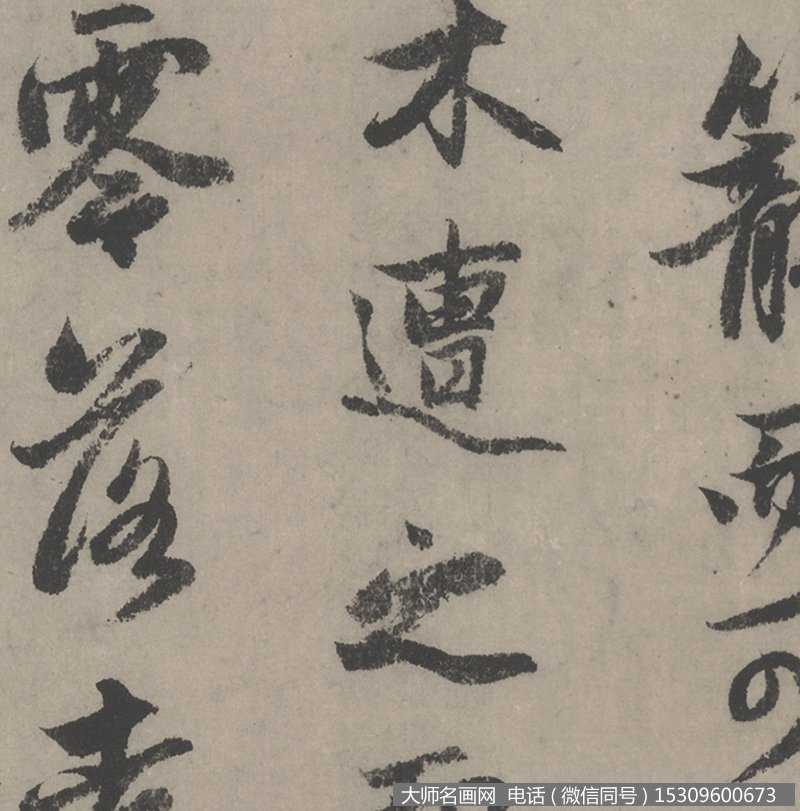 籠而可
木遭之而
零落者
大师名画网 电话(微信同号)15309600673